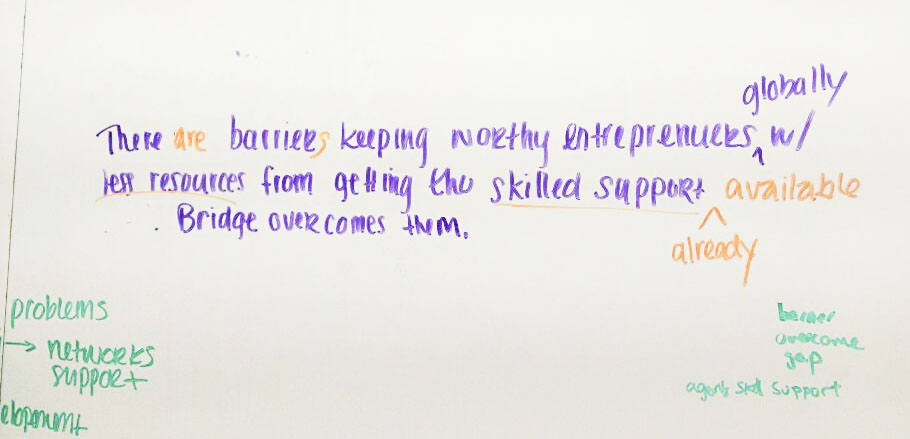 globally
There are barriers keeping worthy entreprenuers w/
less resources from getting the skilled support available
already
. Bridge overcomes them.
problems
→ networks
support
elopment
barrier
overcome
gap
agents skill support